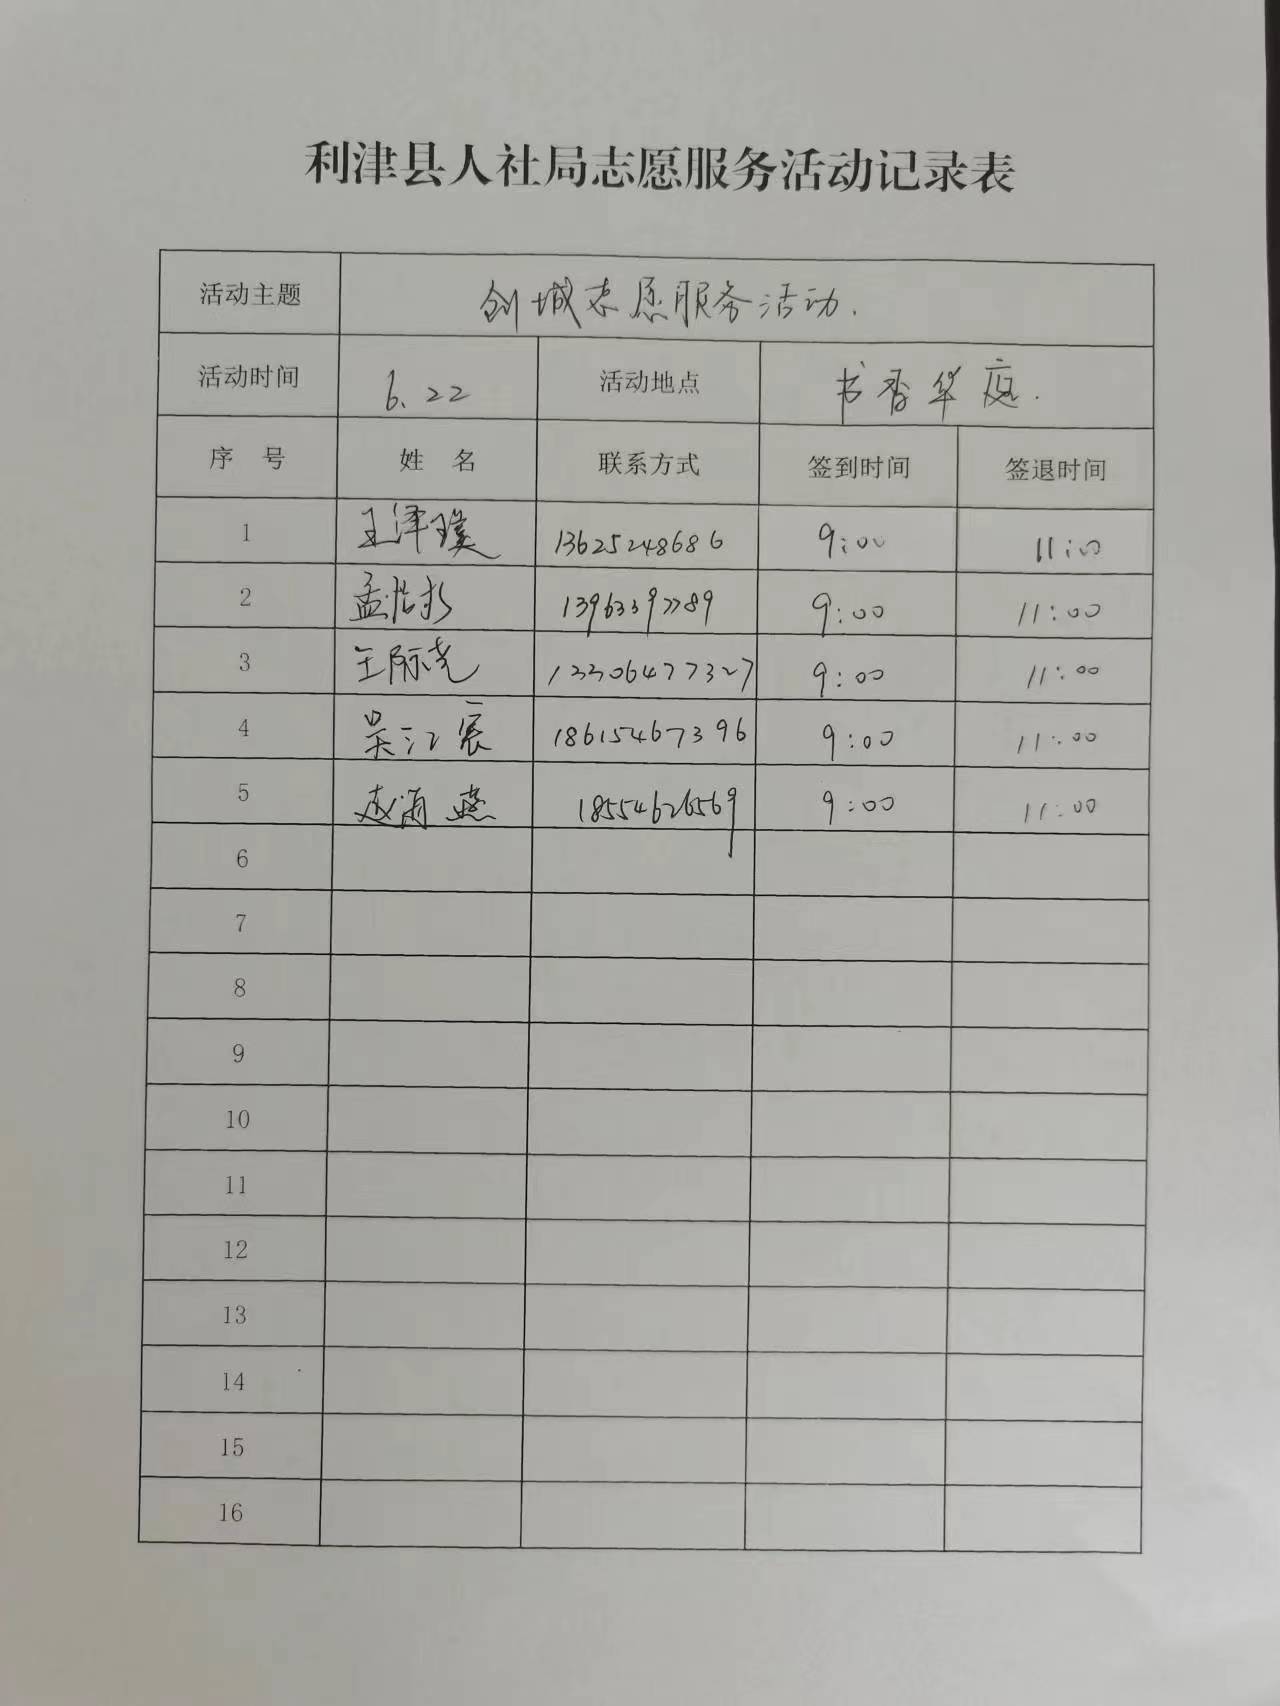 利津县人社局志愿服务活动记录表
活动主题 创城志愿服务活动.
活动时间 6.22 活动地点 书香华庭.
序 号 姓 名 联系方式 签到时间 签退时间
1 王泽璞 13625248686 9:00 11:00
2 孟 13963397789 9:00 11:00
3 王际尧 13306477327 9:00 11:00
4 吴江宸 18615467396 9:00 11:00
5 赵海燕 18554626569 9:00 11:00
6
7
8
9
10
11
12
13
14
15
16